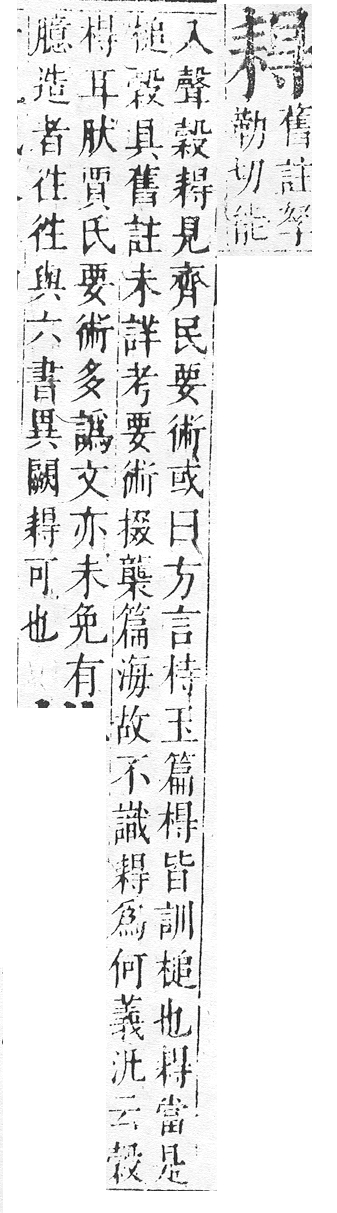 舊註孥
勒切能
入聲穀見齊民要術或曰方言㭙玉篇棏皆訓槌也當是
槌穀具舊註未詳考要術掇襲篇海故不識爲何義汎云穀
棏耳肰賈氏要術多譌文亦未免有
臆造者往往與六書異闕可也